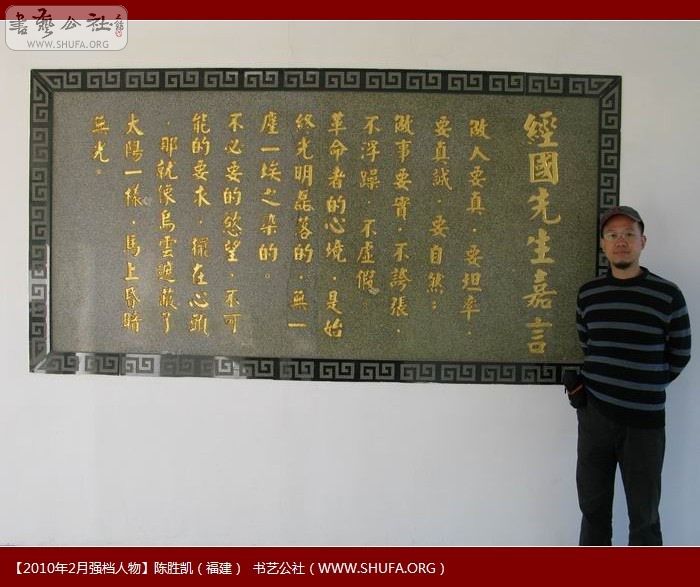 書藝公社
WWW.SHUFA.ORG
經國先生嘉言
做人要真，要坦率，
要真誠，要自然；
做事要實，不誇張，
不浮躁，不虛假。
革命者的心境，是始
終光明磊落的，無一
塵一埃之染的。
不必要的慾望，不可
能的要求，擺在心頭
，那就像烏雲遮蔽了
太陽一樣，馬上昏暗
無光。
【2010年2月强档人物】陈胜凯（福建） 书艺公社（WWW.SHUFA.ORG）